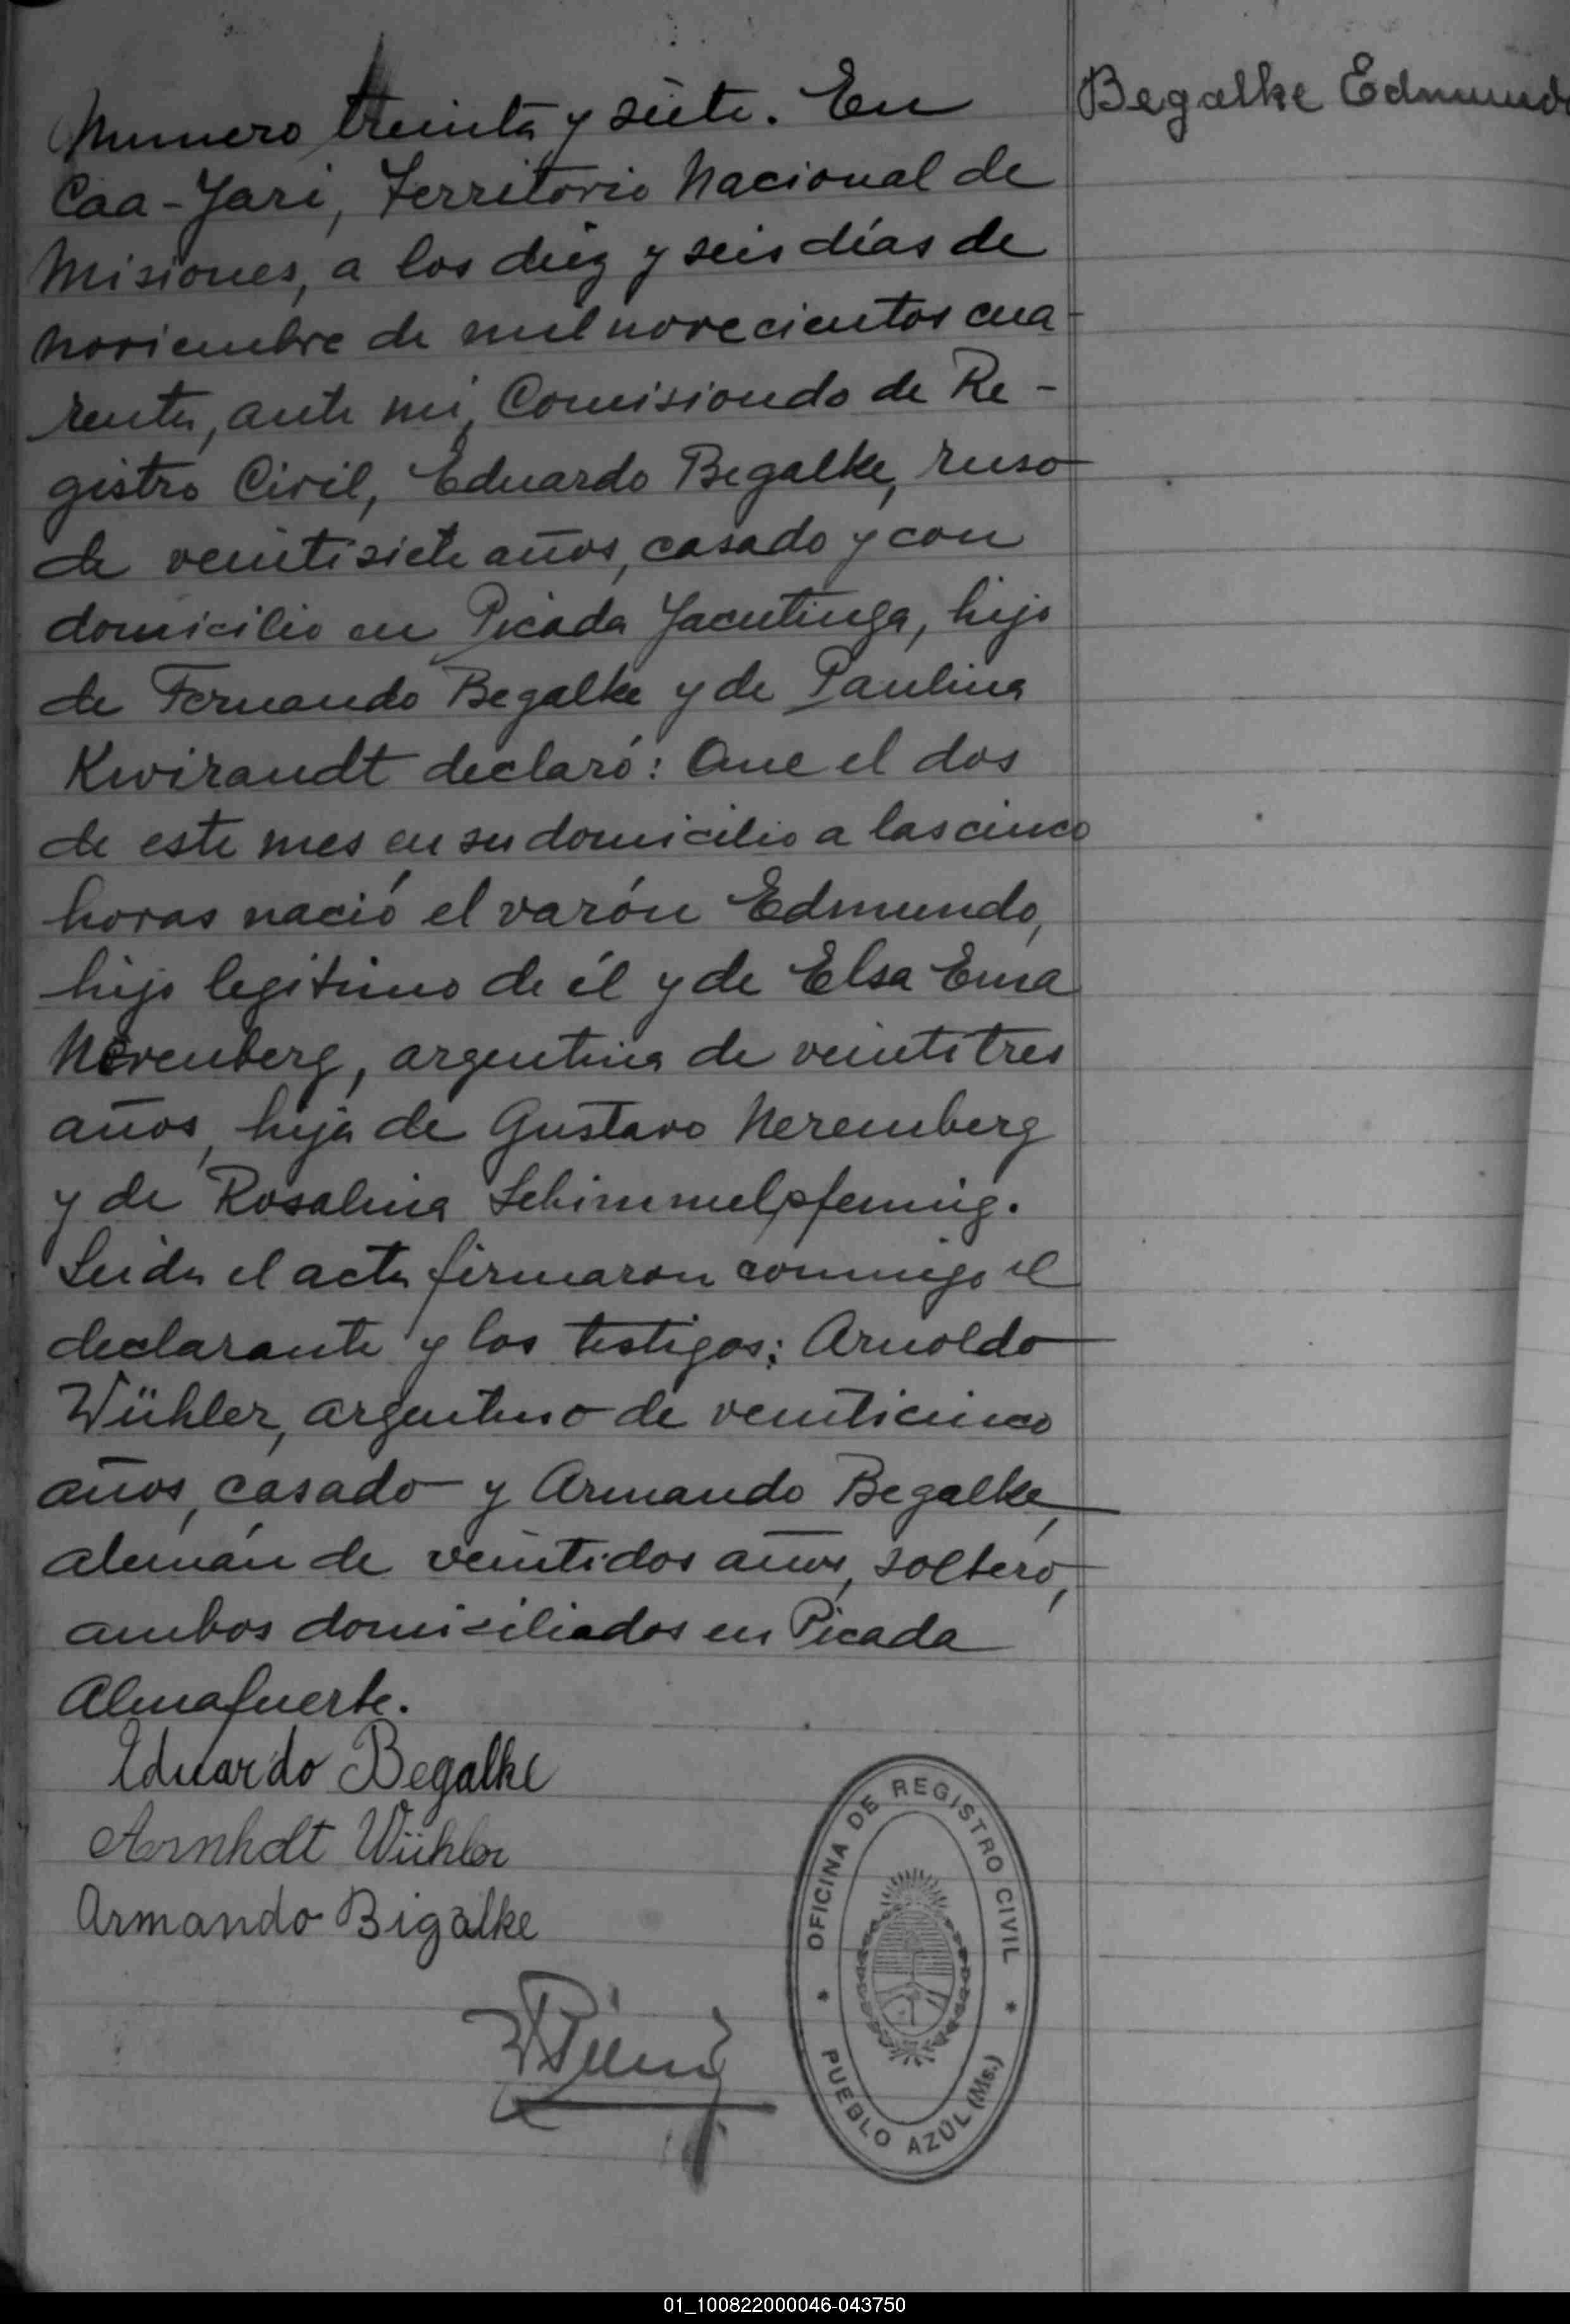 Begalke Edmundo
Numero treinta y siete. En
Caa-Yari, Territorio Nacional de
Misiones, a los diez y seis días de
noviembre de mil novecientos cua-
renta, ante mi, Comisionado de Re-
gistro Civil, Eduardo Begalke, ruso
de veintisiete años, casado y con
domicilio en Picada Yacutinga, hijo
de Fernando Begalke y de Paulina
Kwirandt declaró: Que el dos
de este mes en su domicilio a las cinco
horas nació el varón Edmundo,
hijo legitimo de él y de Elsa Ema
Nerenberg, argentina de veintitres
años, hija de Gustavo Neremberg
y de Rosalina Schimmelpfennig.
Leida el acta firmaron conmigo el
declarante y los testigos: Arnoldo
Wühler, argentino de veinticinco
años, casado y Armando Begalke,
alemán de veintidos años, soltero,
ambos domiciliados en Picada
Almafuerte.
Eduardo Begalke
Arnhdt Wühler
Armando Bigalke
OFICINA DE REGISTRO CIVIL
PUEBLO AZÚL (Ms.)
01_100822000046-043750